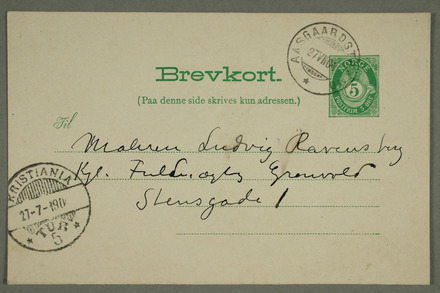 Brevkort.
(Paa denne side skrives kun adressen.)
NORGE
5
Til
Maleren Ludvig Ravensberg
Kgl. Fuldmægtig Grønvold
Stensgade 1
KRISTIANIA
27-7-190
TUR
5